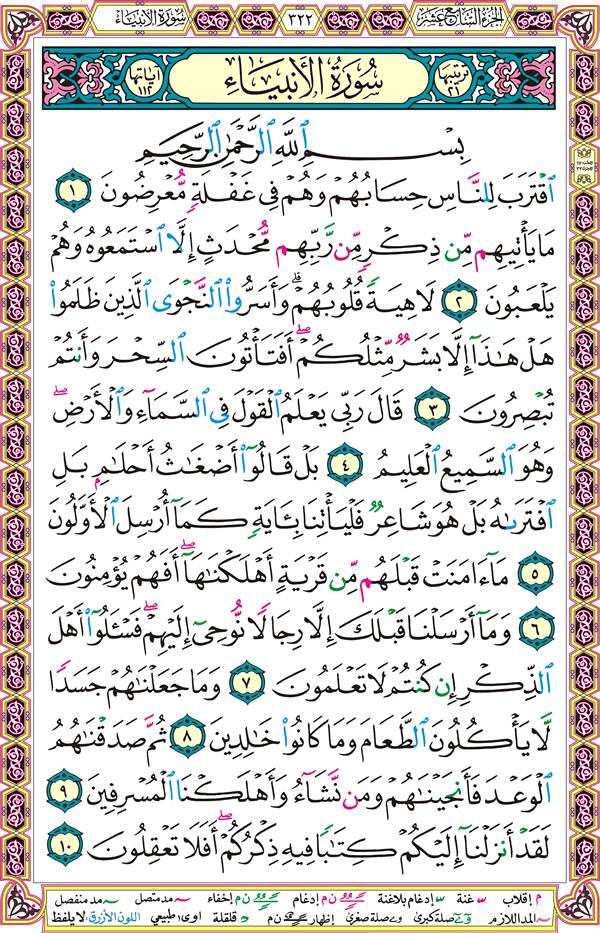 سُورَةُ الأَنْبِيَاءِ ٣٢٢ الجُزْءُ السَّابِعَ عَشَرَ
تَرْتِيبُهَا ٢١ سُورَةُ الأَنبِيَاءِ آيَاتُهَا ١١٢
بِسْمِ ٱللَّهِ ٱلرَّحْمَٰنِ ٱلرَّحِيمِ
ٱقْتَرَبَ لِلنَّاسِ حِسَابُهُمْ وَهُمْ فِي غَفْلَةٍ مُّعْرِضُونَ ١
مَا يَأْتِيهِم مِّن ذِكْرٍ مِّن رَّبِّهِم مُّحْدَثٍ إِلَّا ٱسْتَمَعُوهُ وَهُمْ
يَلْعَبُونَ ٢ لَاهِيَةً قُلُوبُهُمْ ۗ وَأَسَرُّوا۟ ٱلنَّجْوَى ٱلَّذِينَ ظَلَمُوا۟
هَلْ هَٰذَآ إِلَّا بَشَرٌ مِّثْلُكُمْ ۖ أَفَتَأْتُونَ ٱلسِّحْرَ وَأَنتُمْ
تُبْصِرُونَ ٣ قَالَ رَبِّي يَعْلَمُ ٱلْقَوْلَ فِي ٱلسَّمَآءِ وَٱلْأَرْضِ ۖ
وَهُوَ ٱلسَّمِيعُ ٱلْعَلِيمُ ٤ بَلْ قَالُوٓا۟ أَضْغَٰثُ أَحْلَٰمٍۭ بَلِ
ٱفْتَرَىٰهُ بَلْ هُوَ شَاعِرٌ فَلْيَأْتِنَا بِـَٔايَةٍ كَمَآ أُرْسِلَ ٱلْأَوَّلُونَ
٥ مَآ ءَامَنَتْ قَبْلَهُم مِّن قَرْيَةٍ أَهْلَكْنَٰهَآ ۖ أَفَهُمْ يُؤْمِنُونَ
٦ وَمَآ أَرْسَلْنَا قَبْلَكَ إِلَّا رِجَالًا نُّوحِيٓ إِلَيْهِمْ ۖ فَسْـَٔلُوٓا۟ أَهْلَ
ٱلذِّكْرِ إِن كُنتُمْ لَا تَعْلَمُونَ ٧ وَمَا جَعَلْنَٰهُمْ جَسَدًا
لَّا يَأْكُلُونَ ٱلطَّعَامَ وَمَا كَانُوا۟ خَٰلِدِينَ ٨ ثُمَّ صَدَقْنَٰهُمُ
ٱلْوَعْدَ فَأَنجَيْنَٰهُمْ وَمَن نَّشَآءُ وَأَهْلَكْنَا ٱلْمُسْرِفِينَ ٩
لَقَدْ أَنزَلْنَآ إِلَيْكُمْ كِتَٰبًا فِيهِ ذِكْرُكُمْ ۖ أَفَلَا تَعْقِلُونَ ١٠
م إقلاب غنة إدغام بلاغنة ن م إدغام ن م إخفاء مد متصل مد منفصل
المد اللازم صلة كبرى صلة صغرى إظهار ن م قلقلة اوى طبيعي اللون الأزرق: لا يلفظ